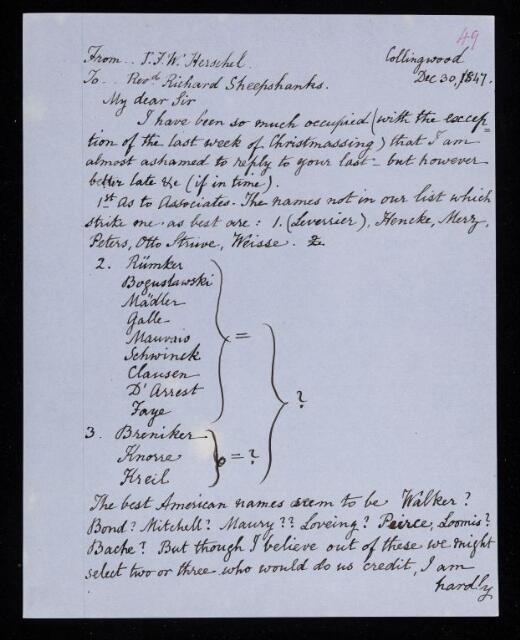 49
From .. J.F.W. Herschel. Collingwood
To .. Revd. Richard Sheepshanks. Dec 30, 1847.
My dear Sir
I have been so much occupied (with the excep-
tion of the last week of Christmassing) that I am
almost ashamed to reply to your last – but however
better late &c (if in time).
1st As to Associates. The names not in our list which
strike one as best are: 1. (Leverrier), Hencke, Merz,
Peters, Otto Struve, Weisse. 2.
2. Rümker
Boguslawski
Mädler
Galle
Mauvais =
Schwinck
Clausen
D'Arrest ?
Faye
3. Breniker
Knorre = ?
Kreil
The best American names seem to be Walker?
Bond? Mitchell? Maury?? Loveing? Peirce, Loomis?
Bache? But though I believe out of these we might
select two or three who would do us credit, I am
hardly